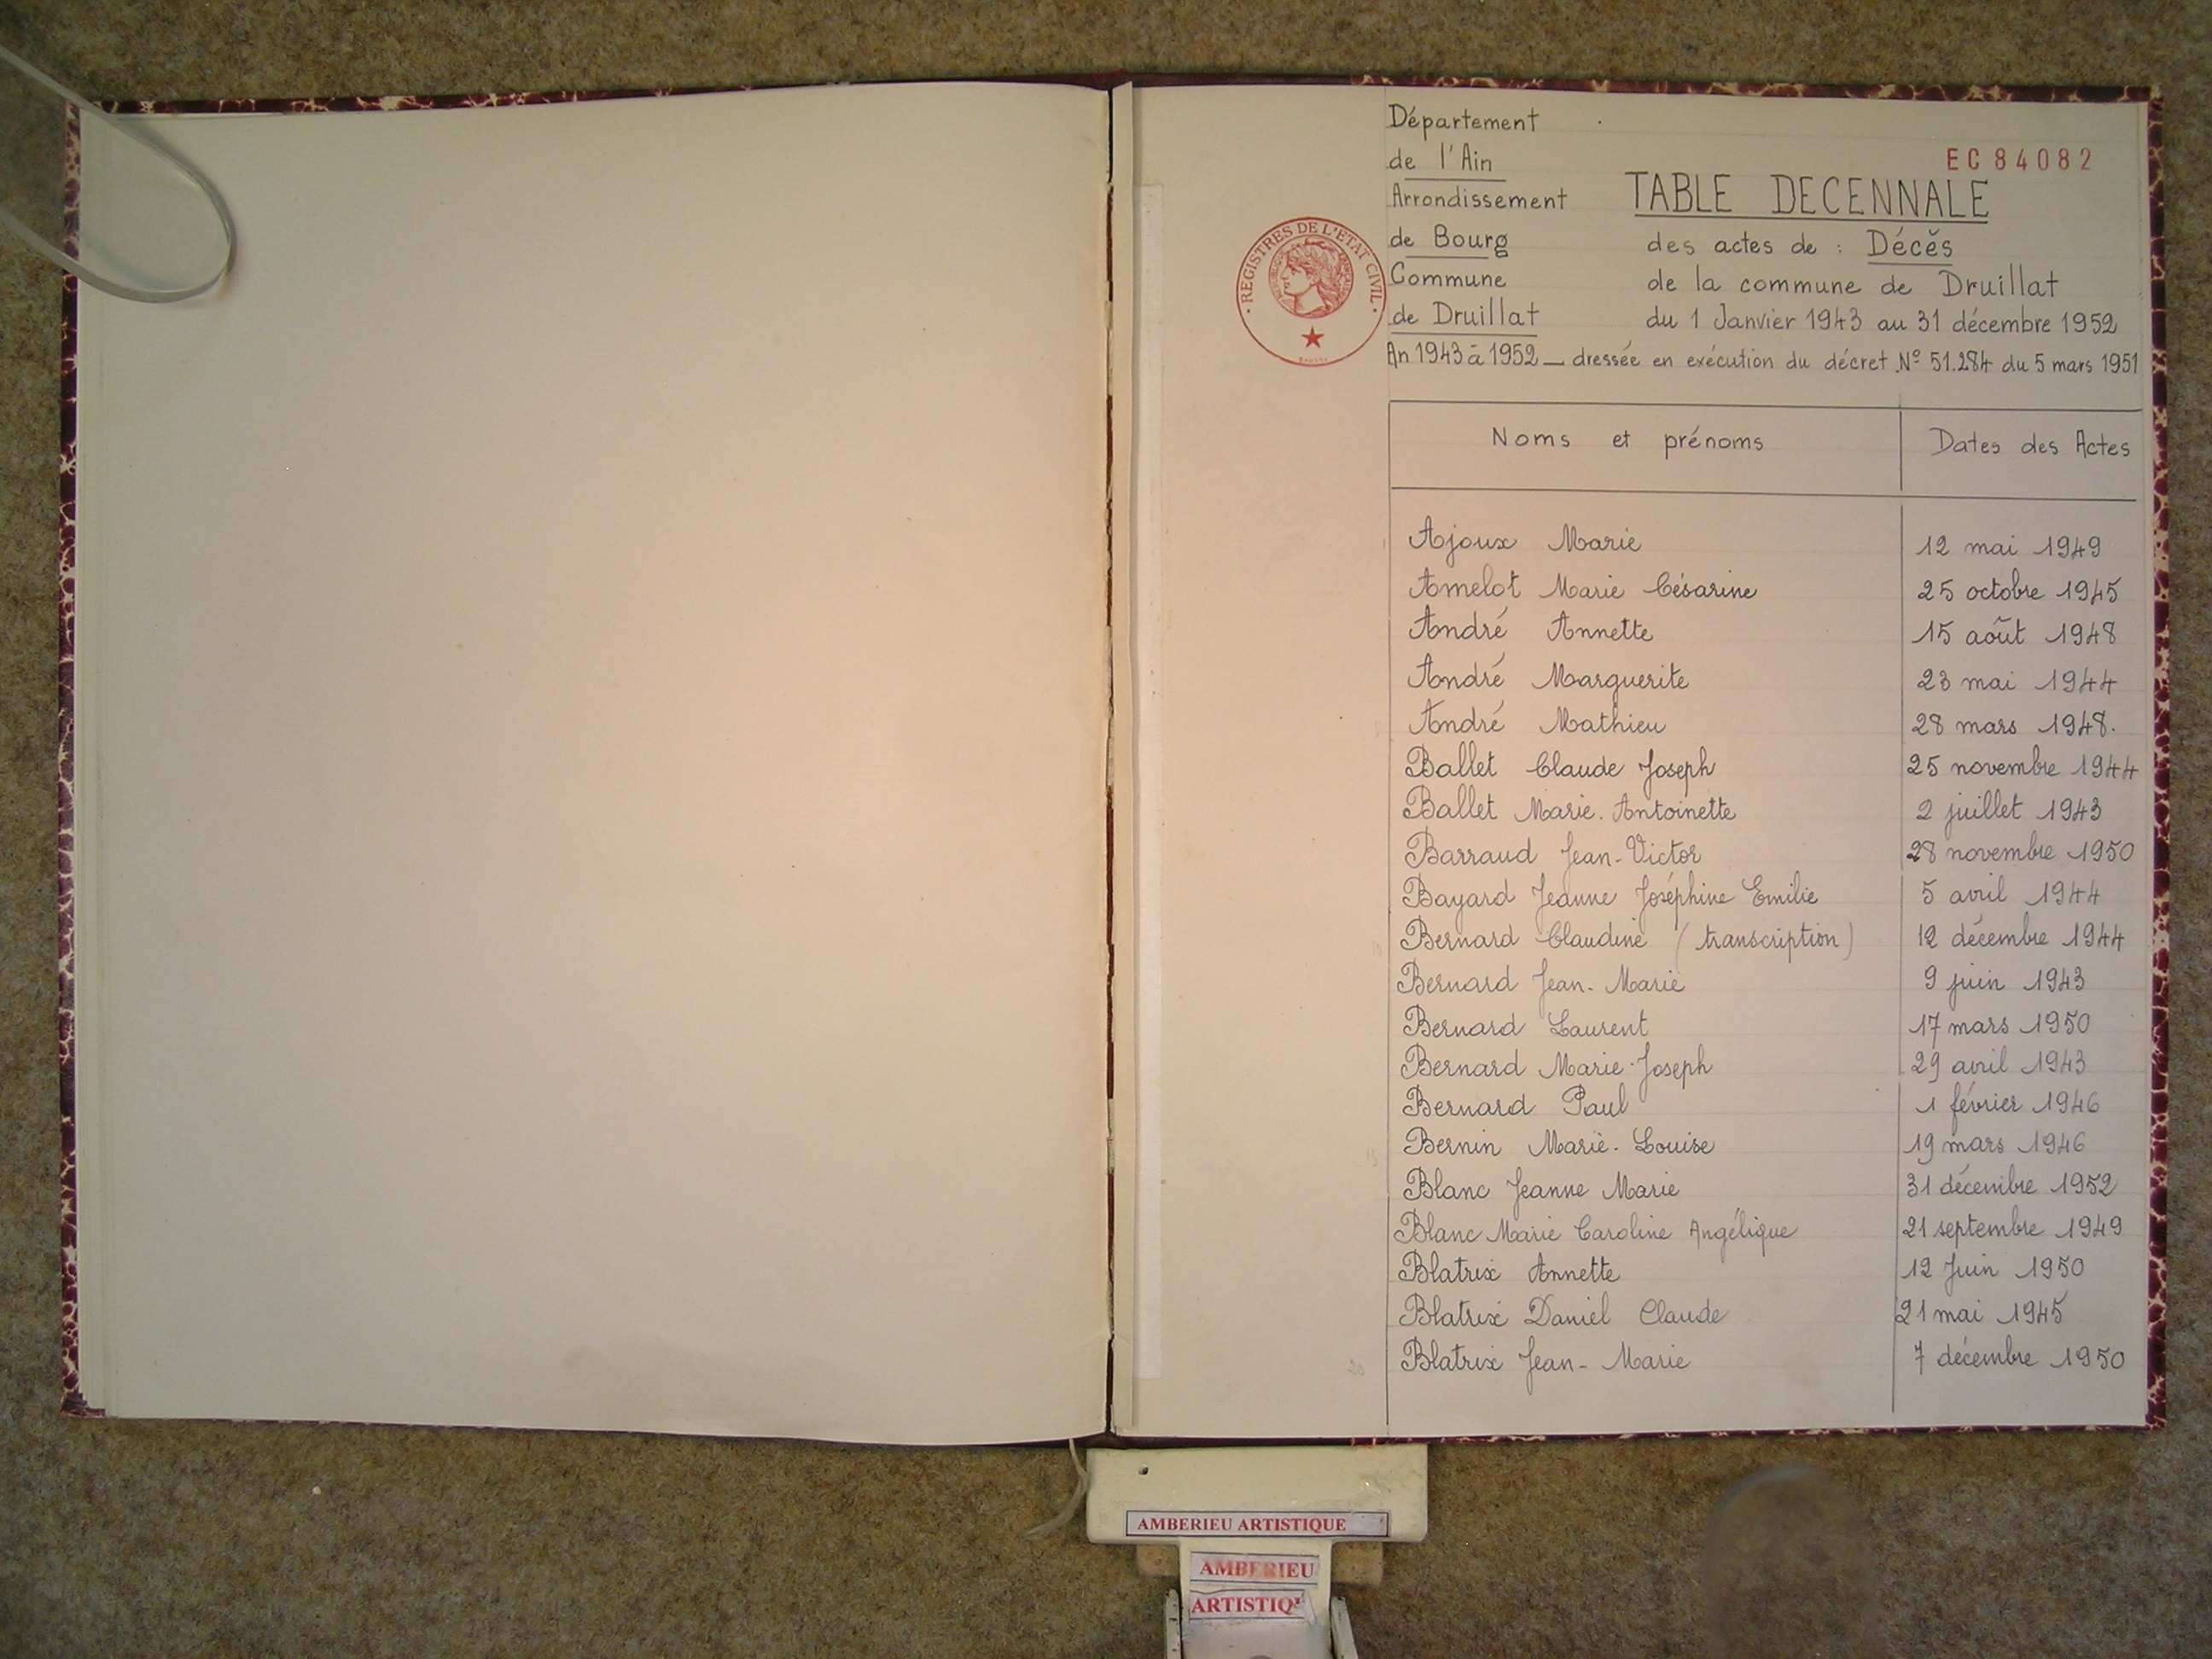 Département
de l'Ain
EC 84082
Arrondissement
TABLE DECENNALE
de Bourg
des actes de : Décès
Commune
de la commune de Druillat
de Druillat
du 1 Janvier 1943 au 31 décembre 1952
An 1943 à 1952 _ dressée en exécution du décret Nº 51.284 du 5 mars 1951
· REGISTRES DE L'ETAT CIVIL ·
Noms et prénoms Dates des Actes
Ajoux Marie 12 mai 1949
Amelot Marie Césarine 25 octobre 1945
André Annette 15 août 1948
André Marguerite 23 mai 1944
André Mathieu 28 mars 1948.
Ballet Claude Joseph 25 novembre 1944
Ballet Marie. Antoinette 2 juillet 1943
Barraud Jean-Victor 28 novembre 1950
Bayard Jeanne Joséphine Emilie 5 avril 1944
Bernard Claudine (transcription) 12 décembre 1944
Bernard Jean-Marie 9 juin 1943
Bernard Laurent 17 mars 1950
Bernard Marie-Joseph 29 avril 1943
Bernard Paul 1 février 1946
Bernin Marie-Louise 19 mars 1946
Blanc Jeanne Marie 31 décembre 1952
Blanc Marie Caroline Angélique 21 septembre 1949
Blatrix Annette 12 Juin 1950
Blatrix Daniel Claude 21 mai 1945
Blatrix Jean-Marie 7 décembre 1950
AMBERIEU ARTISTIQUE
AMBERIEU
ARTISTIQ